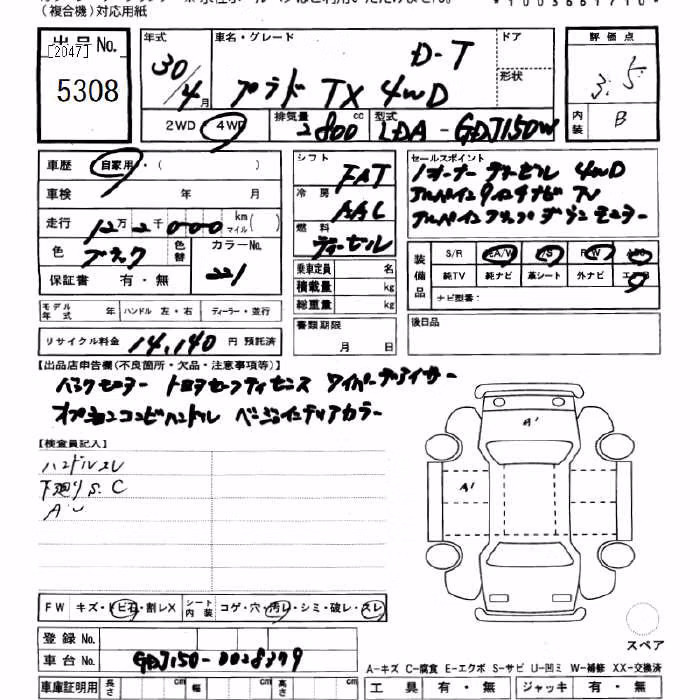 (複合機)対応用紙
出品No.
[2047]
5308
年式
30/4月
車名・グレード
D-T
プラド TX 4WD
ドア
形状
評価点
3.5
内装
B
2WD 4WD
排気量 2800 cc
型式 LDA-GDJ150W
車歴 自家用・( )
車検 年 月
走行 12万2千000 km マイル( )
色 ブラック
色替
カラーNo. 221
保証書 有・無
シフト FAT
冷房 AAC
燃料 ディーゼル
乗車定員 名
積載量 kg
総重量 kg
セールスポイント
1オーナー ディーゼル 4WD
アルパイン9インチナビ TV
アルパインフリップダウンモニター
装備品
S/R
P/S
P/W
純TV 純ナビ 革シート 外ナビ
ナビ型番:
モデル年式 年 ハンドル 左・右 ディーラー・並行
書類期限 月 日
後日品
リサイクル料金 14,140 円 預託済
【出品店申告欄(不良箇所・欠品・注意事項等)】
バックモニター トヨタセーフティセンス ワイパーデアイサー
オプションコンビハンドル ベージュインテリアカラー
【検査員記入】
ハンドルスレ
下廻りS.C
A'
A'
FW キズ・トビ石・割レX
シート内装 コゲ・穴・汚レ・シミ・破レ・スレ
登録No.
車台No. GDJ150-0028379
スペア
A-キズ C-腐食 E-エクボ S-サビ U-凹ミ W-補修 XX-交換済
車庫証明用 長さ cm 幅 cm 高さ cm
工具 有・無 ジャッキ 有・無